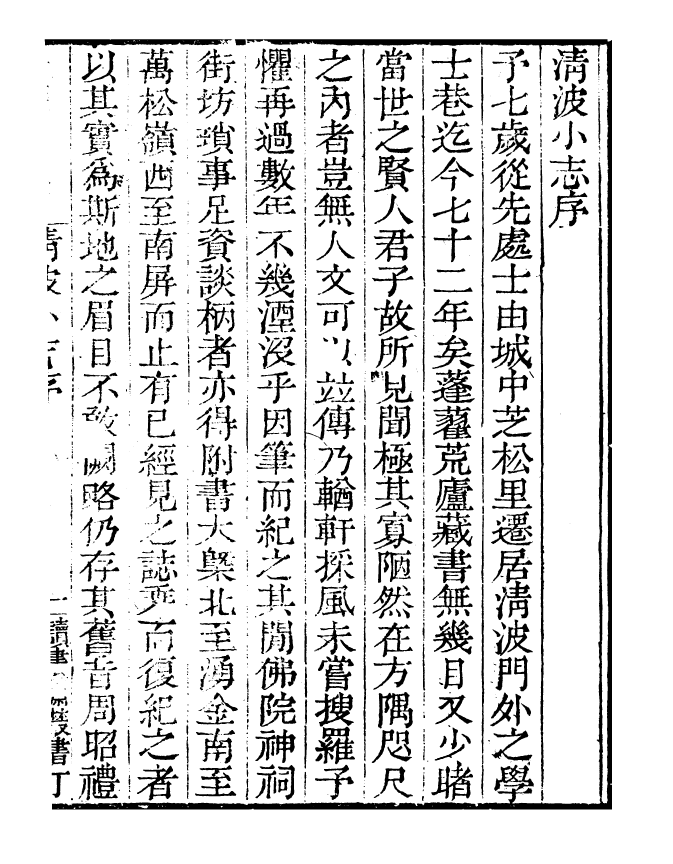 清波小志序
予七歲從先處士由城中芝松里遷居清波門外之學
士巷迄今七十二年矣蓬藋荒廬藏書無幾目又少睹
當世之賢人君子故所見聞極其寡陋然在方隅咫尺
之內者豈無人文可以竝傳乃輶軒採風未嘗搜羅予
懼再過數年不幾湮沒乎因筆而紀之其閒佛院神祠
街坊瑣事足資談柄者亦得附書大槩北至湧金南至
萬松嶺西至南屏而止有已經見之誌乘而復紀之者
以其實為斯地之眉目不敢闕略仍存其舊昔周昭禮
清波小志序 一 讀畫 叢書 丁